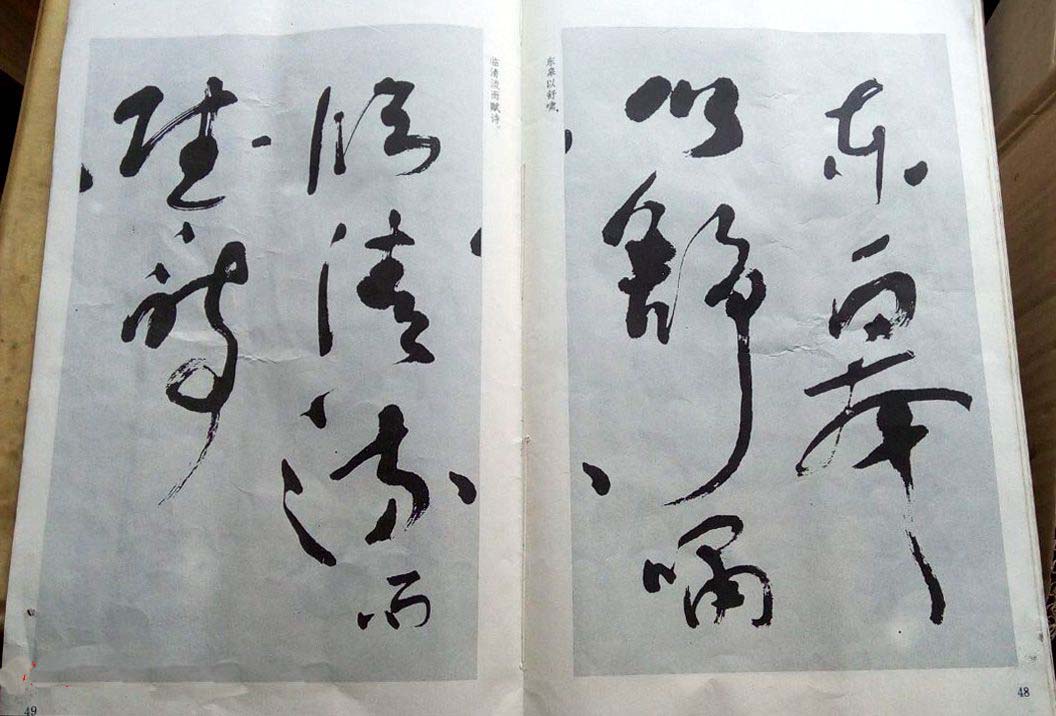 东皋
以舒啸
东皋以舒啸，
48
临清流而赋诗。
临清流而
赋诗
49